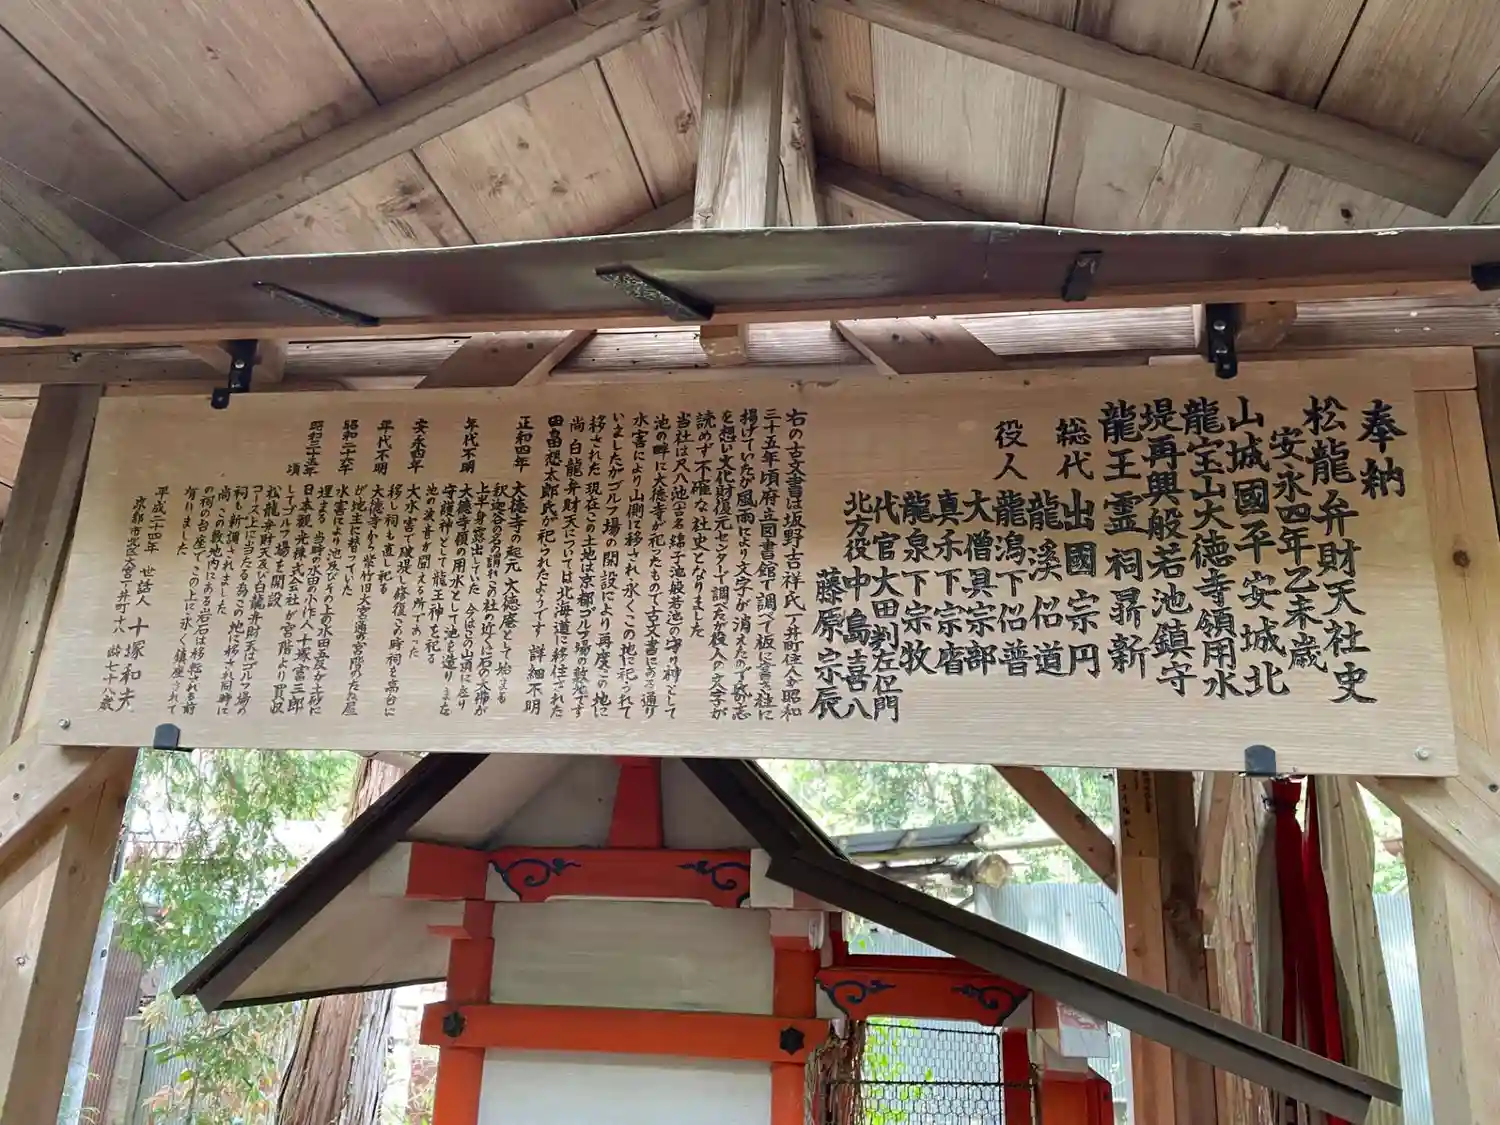 奉納
松龍弁財天社史
安永四年乙未歳
山城國平安城北
龍宝山大徳寺領用水
堤再興般若池鎮守
龍王霊祠鼎新
総代 出國宗円
龍溪侶道
役人 龍潟下侶普
大僧具宗部
真禾下宗㫪
龍泉下宗牧
代官大田判左仁門
北方役中島喜八
藤原宗辰
右の古文書は坂野吉祥氏丁井町住人が昭和
三十五年頃府立図書館で調べて板に書き社に
揚げていたが風雨により文字が消えたので
を想い文化財復元センターで調べたが役人の文字が
読めず不確な社史となりました
当社は尺八池(古名 綿子池般若池)の守り神として
池の畔に大徳寺が祀ったもので古文書にある通り
水害により山側に移され永くこの地に祀られて
いましたがゴルフ場の開設により再度この地に
移された 現在この土地は京都ゴルフ場の敷地です
尚 白龍弁財天については北海道に移住された
田畠想太郎氏が祀られたようです 詳細不明
正和四年 大徳寺の起元 大徳庵として始まる
釈迦谷の名の謂れこの社の近くに石の大佛が
上半身露出していた 今はこの山頭に在り
年代不明 大徳寺領の用水として池を造りまた
守護神として龍王神を祀る
池の波音が聞える所であった
安永四年 大水害で破堤し修復この時祠を高台に
移し祠も直し祀る
年代不明 大徳寺から紫竹旧大宮通の宮階のたな屋
が地主に替っていた
昭和二十六年 水害により池及びその上の水田五反が土砂に
埋まる 当時の水田の小作人 十塚富三郎
昭和三十五年頃 日本観光株式会社が宮階より買収
してゴルフ場を開設
松龍弁財天及び白龍弁財天はゴルフ場の
コース上に当たる為この地に移され同時に
祠も新調されました
尚 この敷地内にある岩石は移転される前
の祠の台座でこの上に永く鎮座されて
有りました
平成二十四年 世話人 十塚和夫
京都市北区大宮一丁井町十八 齢七十八歳